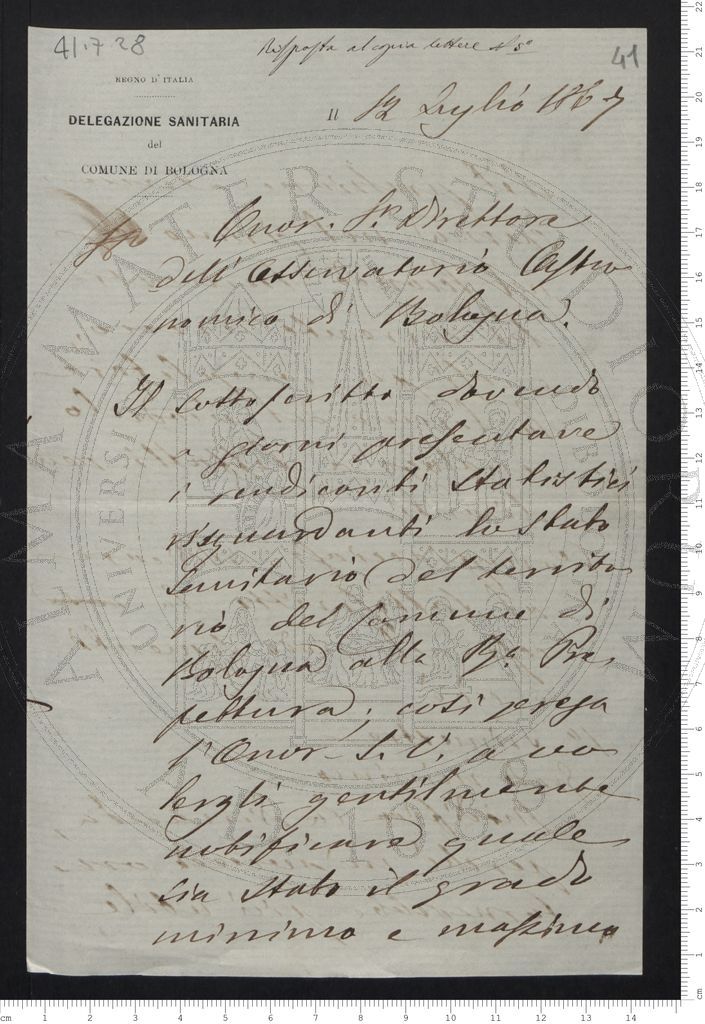 41.7.28
Risposta al copia lettere al 5°
41
REGNO D'ITALIA
DELEGAZIONE SANITARIA
del
COMUNE DI BOLOGNA
Il 12 Luglio 1867
Onor. Sr. Direttore
dell'Osservatorio Astro
nomico di Bologna.
Il sottoscritto dovendo
a giorni presentare
i rendiconti statistici
risguardanti lo stato
Sanitario del territo
rio del Comune di
Bologna alla Ra. Pre,
fettura, così prega
l'Onor. S. V. a vo
lergli gentilmente
notificare quale
sia stato il grado
minimo e massimo
ALMA MATER STUDIORUM
A.D. 1088